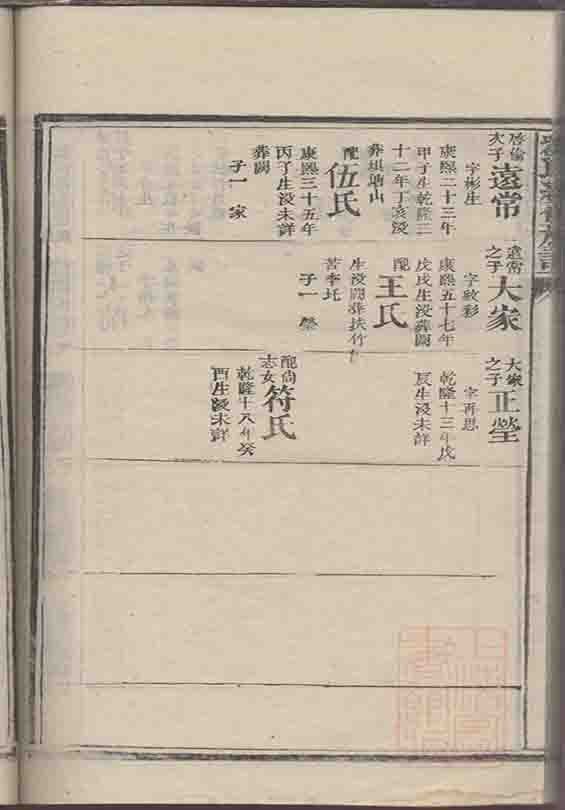 啓倫
次子
遠常
字彬生
康熙二十三年
甲子生乾隆三
十二年丁亥没
葬埧塘山
配伍氏
康熙三十五年
丙子生没未詳
葬闕
子一 家
遠常
之子
大家
字啟彩
康熙五十七年
戊戌生没葬闕
配王氏
生没闕葬扶竹
苦李圫
子一 瑩
大家
之子
正瑩
字再思
乾隆十三年戊
辰生没未詳
配尚
志女
符氏
乾隆十八年癸
酉生没未詳